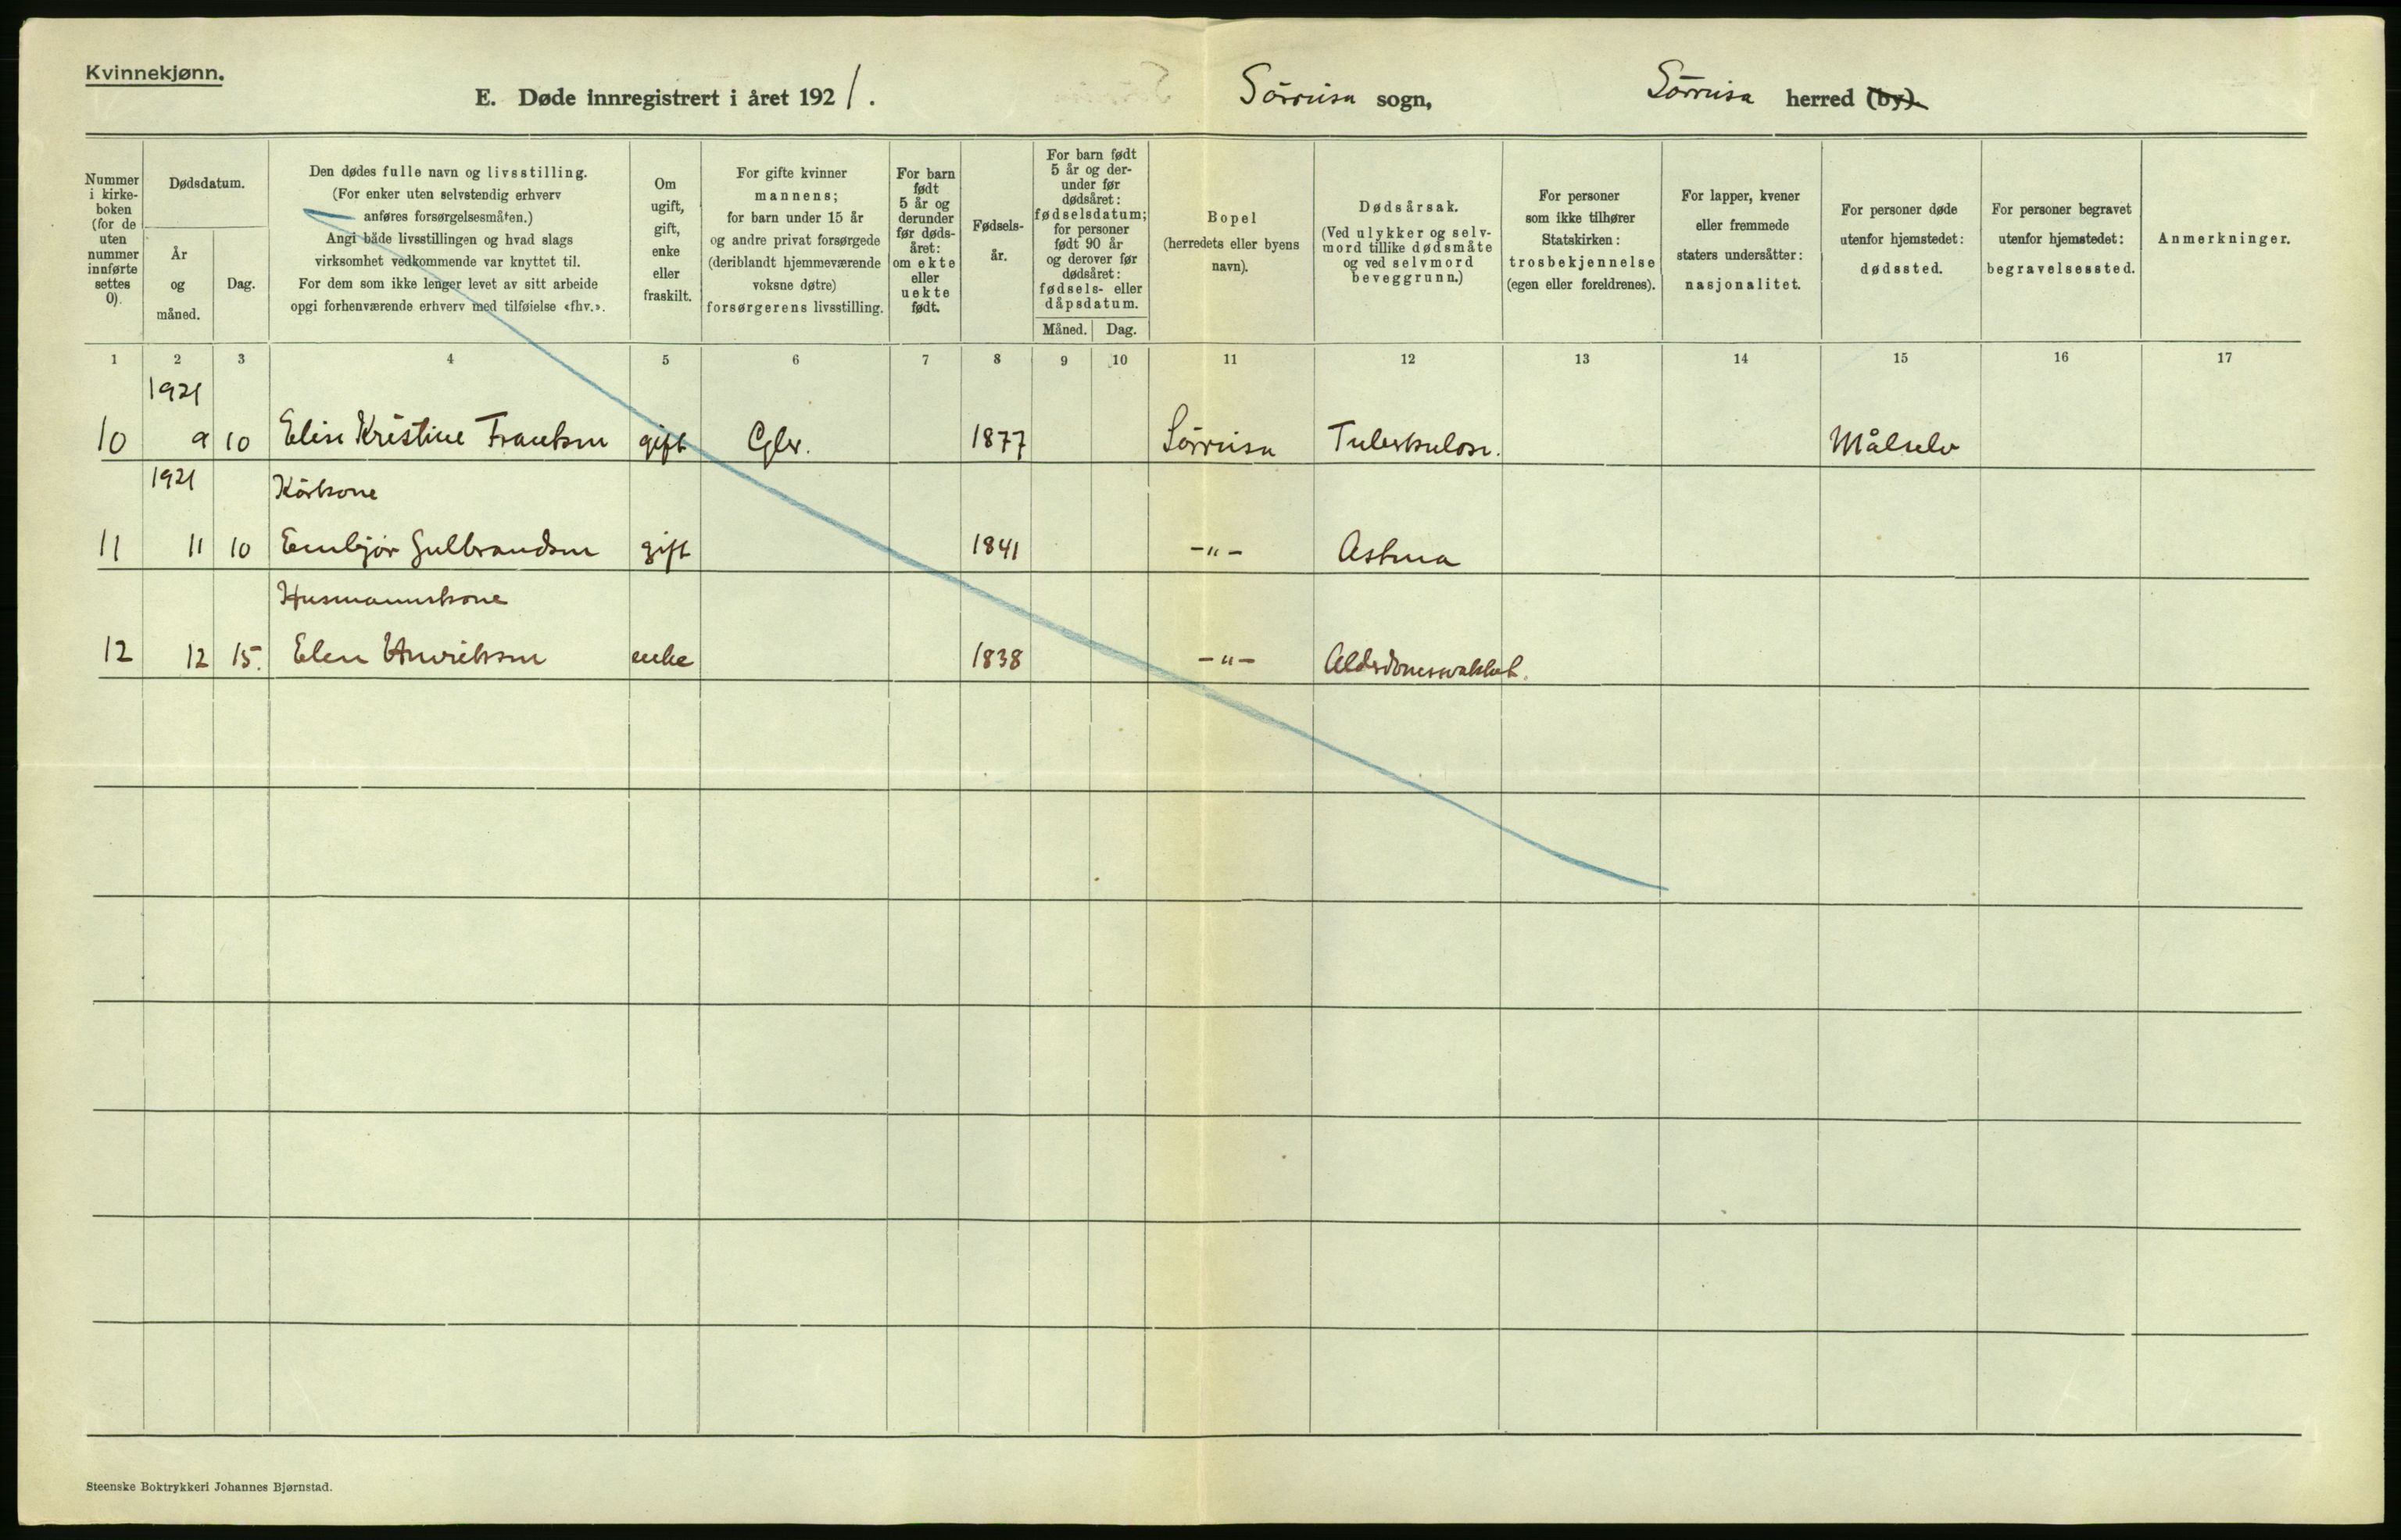 Kvinnekjønn.
E. Døde innregistrert i året 1921.
Sørreisa sogn,
Sørreisa herred (by).
Nummer i kirke- boken (for de uten nummer innførte settes 0).
Dødsdatum.
År og måned.
Dag.
Den dødes fulle navn og livsstilling.
(For enker uten selvstendig erhverv
anføres forsørgelsesmåten.)
Angi både livsstillingen og hvad slags
virksomhet vedkommende var knyttet til.
For dem som ikke lenger levet av sitt arbeide
opgi forhenværende erhverv med tilføielse «fhv.».
Om ugift, gift, enke eller fraskilt.
For gifte kvinner
mannens;
for barn under 15 år
og andre privat forsørgede
(deriblandt hjemmeværende
voksne døtre)
forsørgerens livsstilling.
For barn født 5 år og derunder før døds- året: om ekte eller uekte født.
Fødsels- år.
For barn født
5 år og der-
under før
dødsåret:
fødselsdatum;
for personer
født 90 år
og derover før
dødsåret:
fødsels- eller
dåpsdatum.
Måned. Dag.
Bopel
(herredets eller byens
navn).
Dødsårsak.
(Ved ulykker og selv-
mord tillike dødsmåte
og ved selvmord
beveggrunn.)
For personer
som ikke tilhører
Statskirken:
trosbekjennelse
(egen eller foreldrenes).
For lapper, kvener
eller fremmede
staters undersåtter:
nasjonalitet.
For personer døde
utenfor hjemstedet:
dødssted.
For personer begravet
utenfor hjemstedet:
begravelsessted.
Anmerkninger.
1 2 3 4 5 6 7 8 9 10 11 12 13 14 15 16 17
1921
10 9 10 Elen Kristine Frantsen gift Gbr. 1877 Sørreisa Tuberkulose. Målselv
1921 Kårkone
11 11 10 Gulbrandsen gift 1841 -"- Astma
Husmannskone
12 12 15. Elen Henriksen enke 1838 -"- Alderdomssvakhet.
Steenske Boktrykkeri Johannes Bjørnstad.